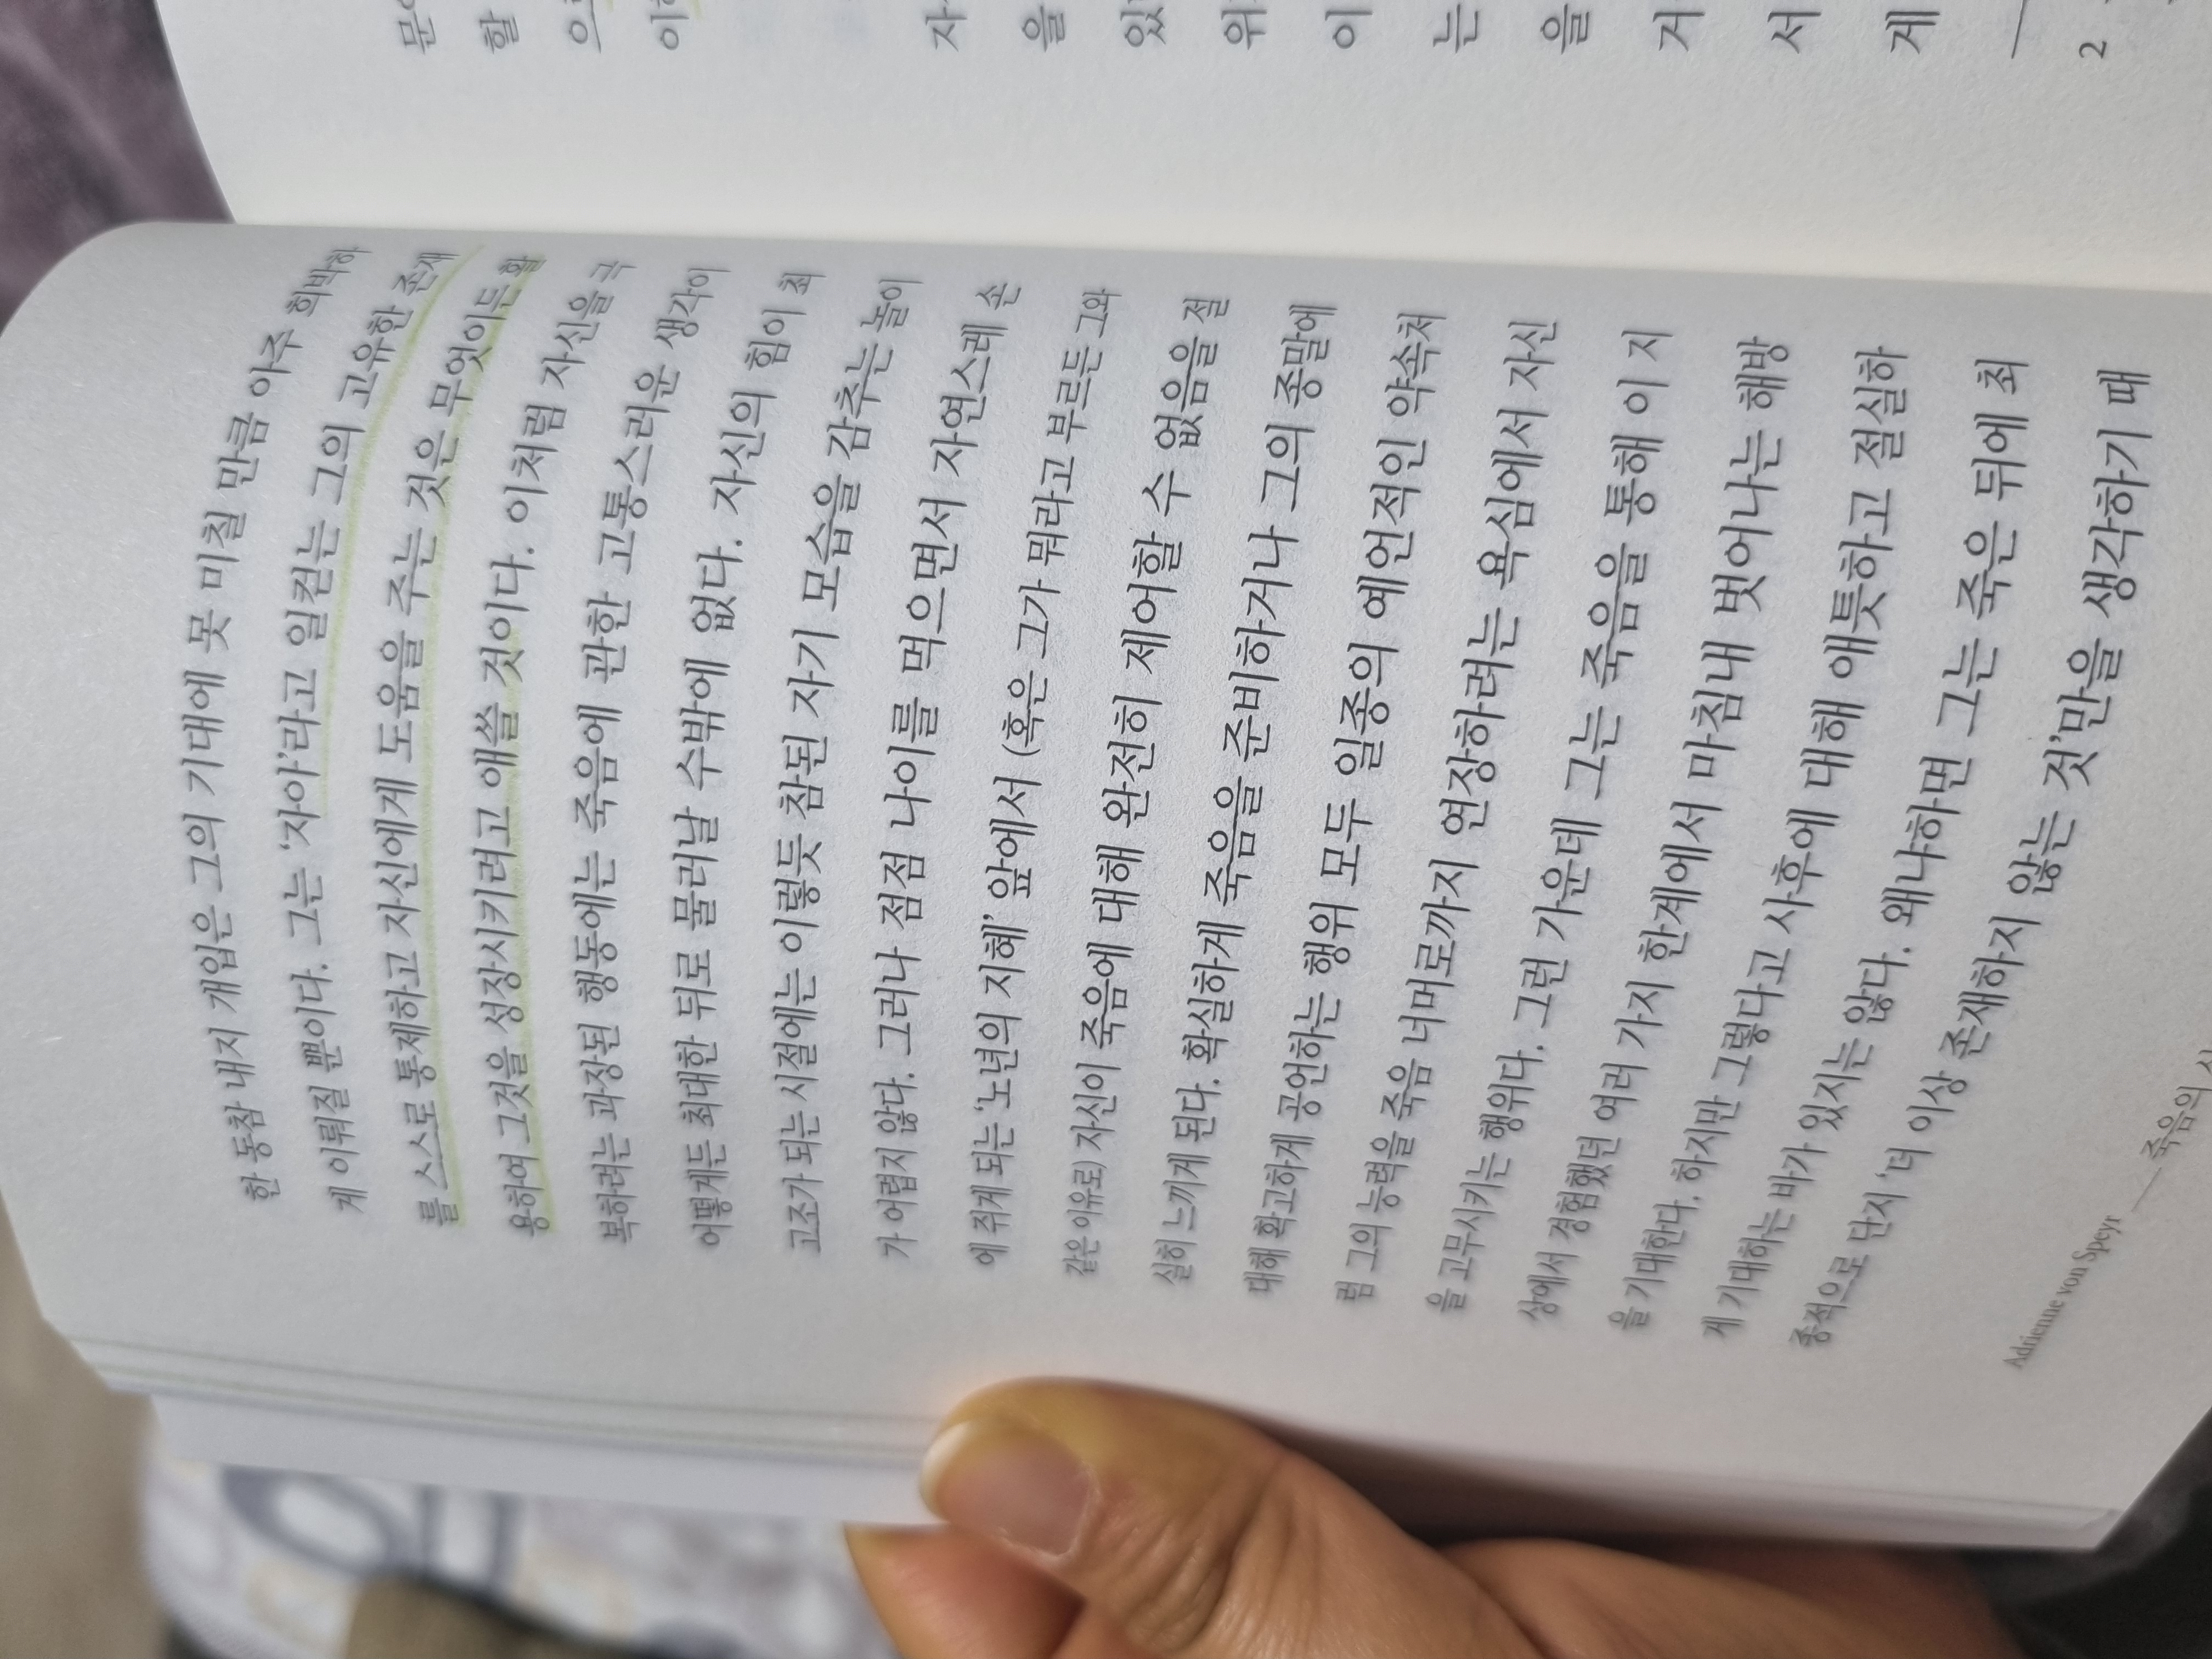 한 동참 내지 개입은 그의 기대에 못 미칠 만큼 아주 희박하
게 이뤄질 뿐이다. 그는 '자아'라고 일컫는 그의 고유한 존재
를 스스로 통제하고 자신에게 도움을 주는 것은 무엇이든 활
용하여 그것을 성장시키려고 애쓸 것이다. 이처럼 자신을 극
복하려는 과장된 행동에는 죽음에 관한 고통스러운 생각이
어떻게든 최대한 뒤로 물러날 수밖에 없다. 자신의 힘이 최
고조가 되는 시절에는 이렇듯 참된 자기 모습을 감추는 놀이
가 어렵지 않다. 그러나 점점 나이를 먹으면서 자연스레 손
에 쥐게 되는 '노년의 지혜' 앞에서 (혹은 그가 뭐라고 부르든 그와
같은 이유로) 자신이 죽음에 대해 완전히 제어할 수 없음을 절
실히 느끼게 된다. 확실하게 죽음을 준비하거나 그의 종말에
대해 확고하게 공언하는 행위 모두 일종의 예언적인 약속처
럼 그의 능력을 죽음 너머로까지 연장하려는 욕심에서 자신
을 고무시키는 행위다. 그런 가운데 그는 죽음을 통해 이 지
상에서 경험했던 여러 가지 한계에서 마침내 벗어나는 해방
을 기대한다. 하지만 그렇다고 사후에 대해 애틋하고 절실하
게 기대하는 바가 있지는 않다. 왜냐하면 그는 죽은 뒤에 최
종적으로 단지 '더 이상 존재하지 않는 것'만을 생각하기 때
Adrienne von Speyr — 죽음의
문
할
으
이
자
을
있
위
이
는
을
거
서
게
2